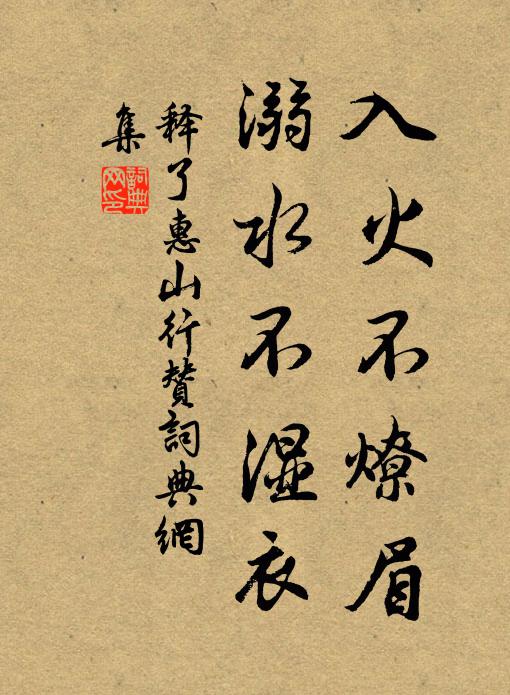 入火不燎眉
溺水不湿衣
释了惠山行赞詞典網
集
詞典
网印